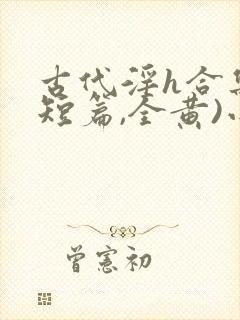 古代淫h合集(
短篇,全黄)小
曾宪初